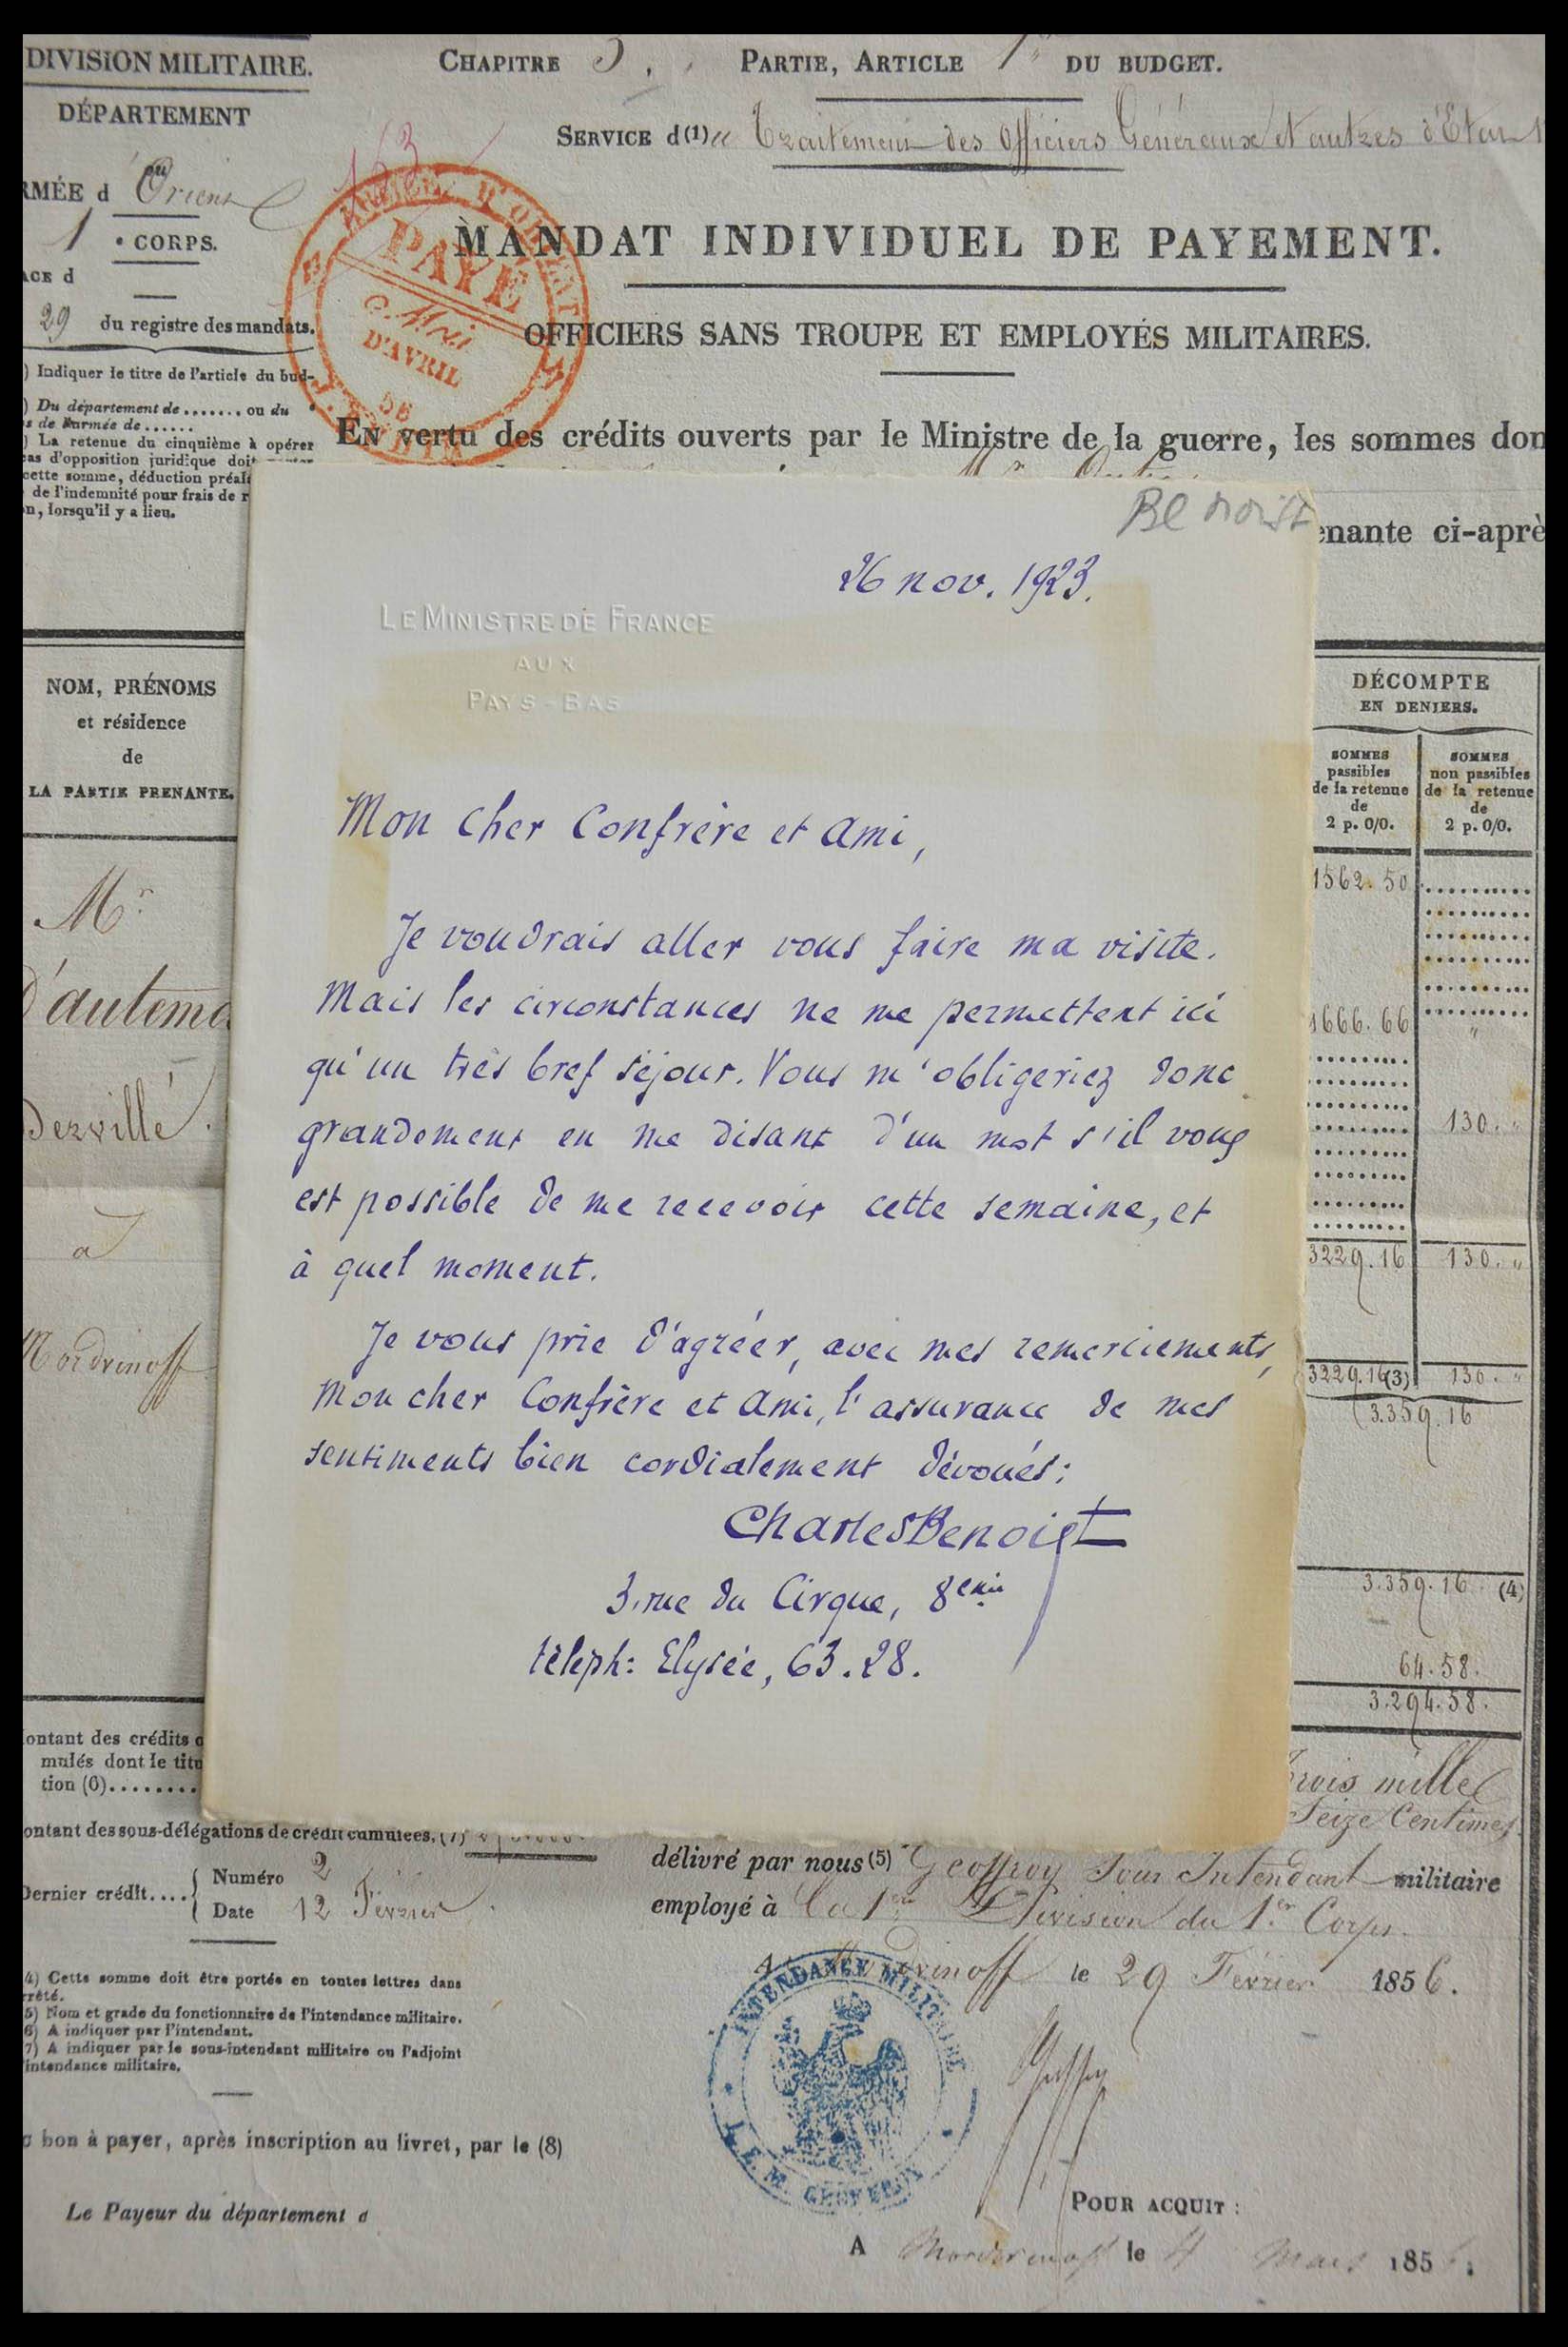 DIVISION MILITAIRE.
DÉPARTEMENT
RMÉE d Orient
1 e CORPS.
ACE d
29 du registre des mandats.
) Indiquer le titre de l'article du bud-
) Du département de ....... ou du
s de l'armée de ......
) La retenue du cinquième à opérer
cas d'opposition juridique doit
cette somme, déduction préal
de l'indemnité pour frais de r
n, lorsqu'il y a lieu.
CHAPITRE 5, PARTIE, ARTICLE 1er DU BUDGET.
SERVICE d(1)u Traitement des Officiers Généraux et autres d'Etat
163
MANDAT INDIVIDUEL DE PAYEMENT.
PAYÉ
D'AVRIL
56
OFFICIERS SANS TROUPE ET EMPLOYÉS MILITAIRES.
EN vertu des crédits ouverts par le Ministre de la guerre, les sommes don
enante ci-aprè
Benoist
26 nov. 1923.
LE MINISTRE DE FRANCE
AUX
PAYS-BAS
Mon cher Confrère et ami,
Je voudrais aller vous faire ma visite.
Mais les circonstances ne me permettent ici
qu'un très bref séjour. Vous m'obligeriez donc
grandement en me disant d'un mot s'il vous
est possible de me recevoir cette semaine, et
à quel moment.
Je vous prie d'agréer, avec mes remerciements,
Mon cher Confrère et ami, l'assurance de mes
sentiments bien cordialement dévoués:
Charles Benoist
3, rue du Cirque, 8eme
téleph: Elysée, 63.28.
NOM, PRÉNOMS
et résidence
de
LA PARTIE PRENANTE.
Mr
D'autema
Derville
a
Mordvinoff
DÉCOMPTE
EN DENIERS.
SOMMES
passibles
de la retenue
de
2 p. 0/0.
SOMMES
non passibles
de la retenue
de
2 p. 0/0.
1562.50
1666.66 "
130. "
3229.16 130. "
3229.16 (3) 130. "
3.359.16
3.359.16 (4)
64.58.
3.294.58.
trois mille
Seize Centimes
ontant des crédits
mulés dont le titu
tion (6)........
ontant des sous-délégations de crédit cumulées. (7)
Dernier crédit....
Numéro 2
Date 12 Février.
délivré par nous (5) Geoffroy Sous Intendant militaire
employé à la 1re Division du 1er Corps.
A Mordvinoff le 29 Février 1856.
INTENDANCE MILITAIRE
4) Cette somme doit être portée en toutes lettres dans
rrêté.
5) Nom et grade du fonctionnaire de l'intendance militaire.
6) A indiquer par l'intendant.
7) A indiquer par le sous-intendant militaire ou l'adjoint
'intendance militaire.
bon à payer, après inscription au livret, par le (8)
Le Payeur du département d
POUR ACQUIT :
A Mordvinoff le 4 Mars 185